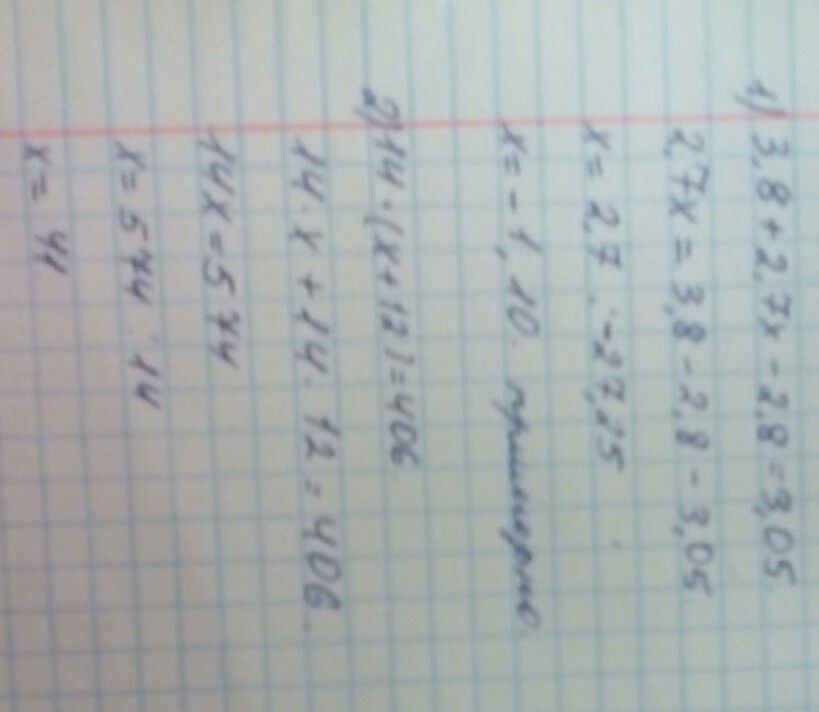 1) 3,8 + 2,7x - 2,8 = 3,05
2,7x = 3,8 - 2,8 - 3,05
x = 2,7 : -27,15
x = -1,10. примерно
2) 14 · (x + 12) = 406
14 · x + 14 · 12 = 406
14x = 574
x = 574 : 14
x = 41